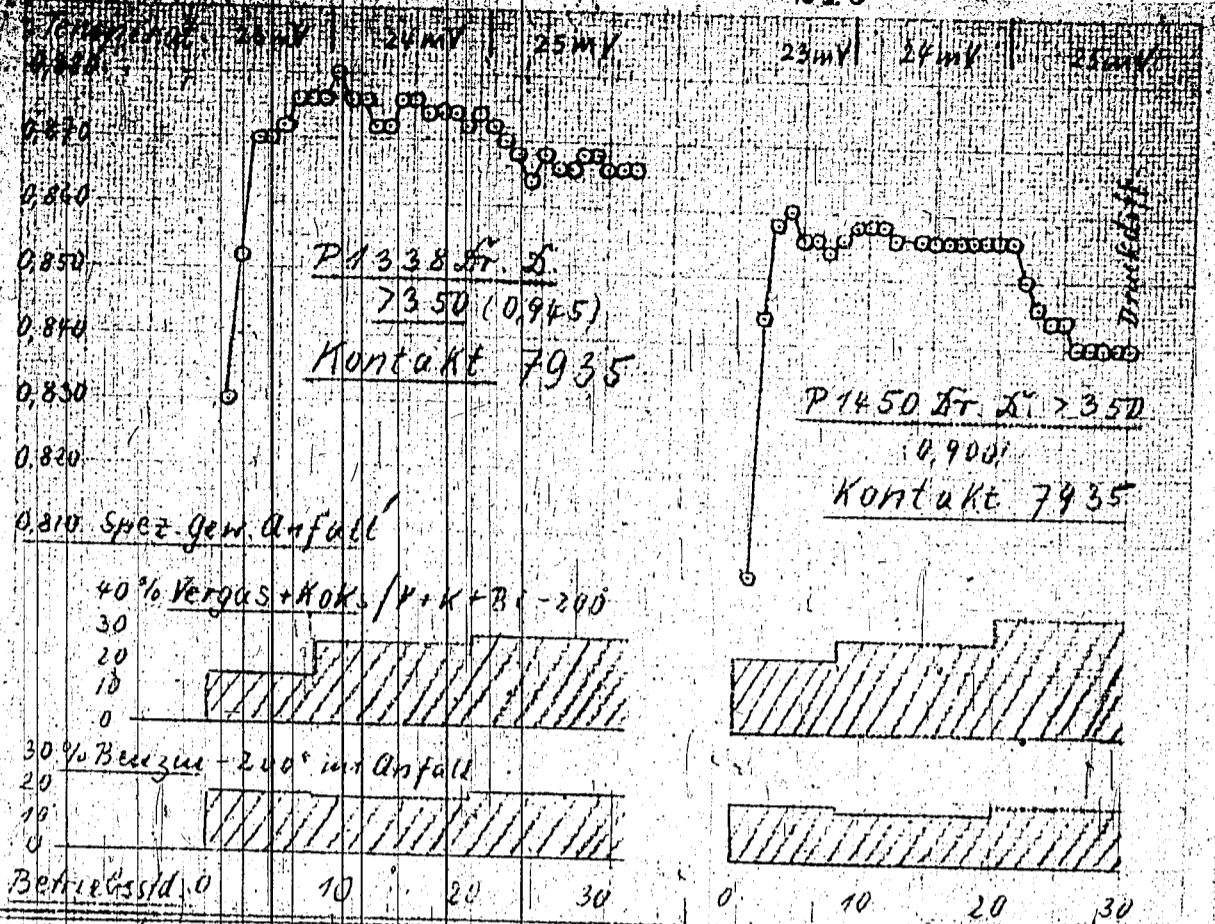 Temperat. 23mV 24mV 25mV
23mV 24mV 25mV
0,880
0,870
0,860
0,850
0,840
0,830
0,820
0,810 Spez. Gew. Anfall
P1338 Dr. D.
>350 (0,945)
Kontakt 7935
P1450 Dr. D. >350
0,900
Kontakt 7935
40 % Vergas + Koks / V + K + Bi -200
30
20
10
0
30 % Benzin -200° im Anfall
20
10
0
Betriebsstd. 0 10 20 30
0 10 20 30